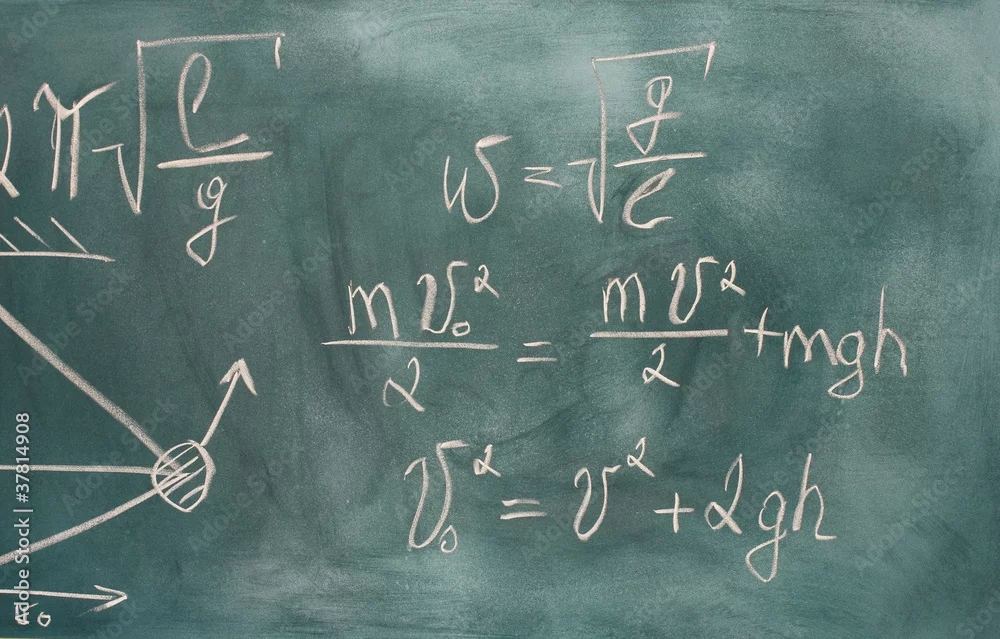 2π√(l/g)
w = √(g/e)
mv₀²/2 = mv²/2 + mgh
v₀² = v² + 2gh
Adobe Stock | #37814908